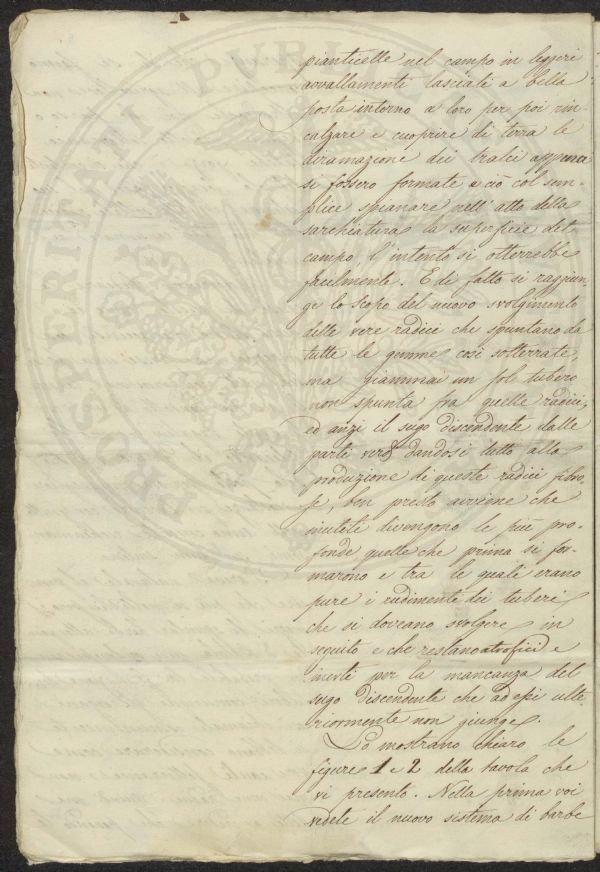 pianticelle nel campo in leggeri
avvallamenti lasciati a bella
posta intorno a loro per poi rin-
calzare e cuoprire di terra le
diramazione dei tralci appena
si fossero formate a ciò col sem-
plice spianare nell' atto della
sarchiatura la superficie del
campo, l'intento si otterrebbe
facilmente. E di fatto si raggiun-
ge lo scopo del nuovo svolgimento
delle vere radici che spuntano da
tutte le gemme così sotterrate,
ma giammai un sol tubero
non spunta fra quelle radici;
ed anzi il sugo discendente dalle
parti verdi dandosi tutto alla
produzione di queste radici fibro-
se, ben presto avviene che
inutili divengono le più pro-
fonde, quelle che prima si for-
marono e tra le quali erano
pure i rudimenti dei tuberi
che si doveano svolgere in
seguito e che restano atrofici e
inerti per la mancanza del
sugo discendente che ad essi ulte-
riormente non giunge.
Lo mostrano chiaro le
figure 1 e 2 della tavola che
vi presento. Nella prima voi
vedete il nuovo sistema di barbe
PROSPERITATI PVBL